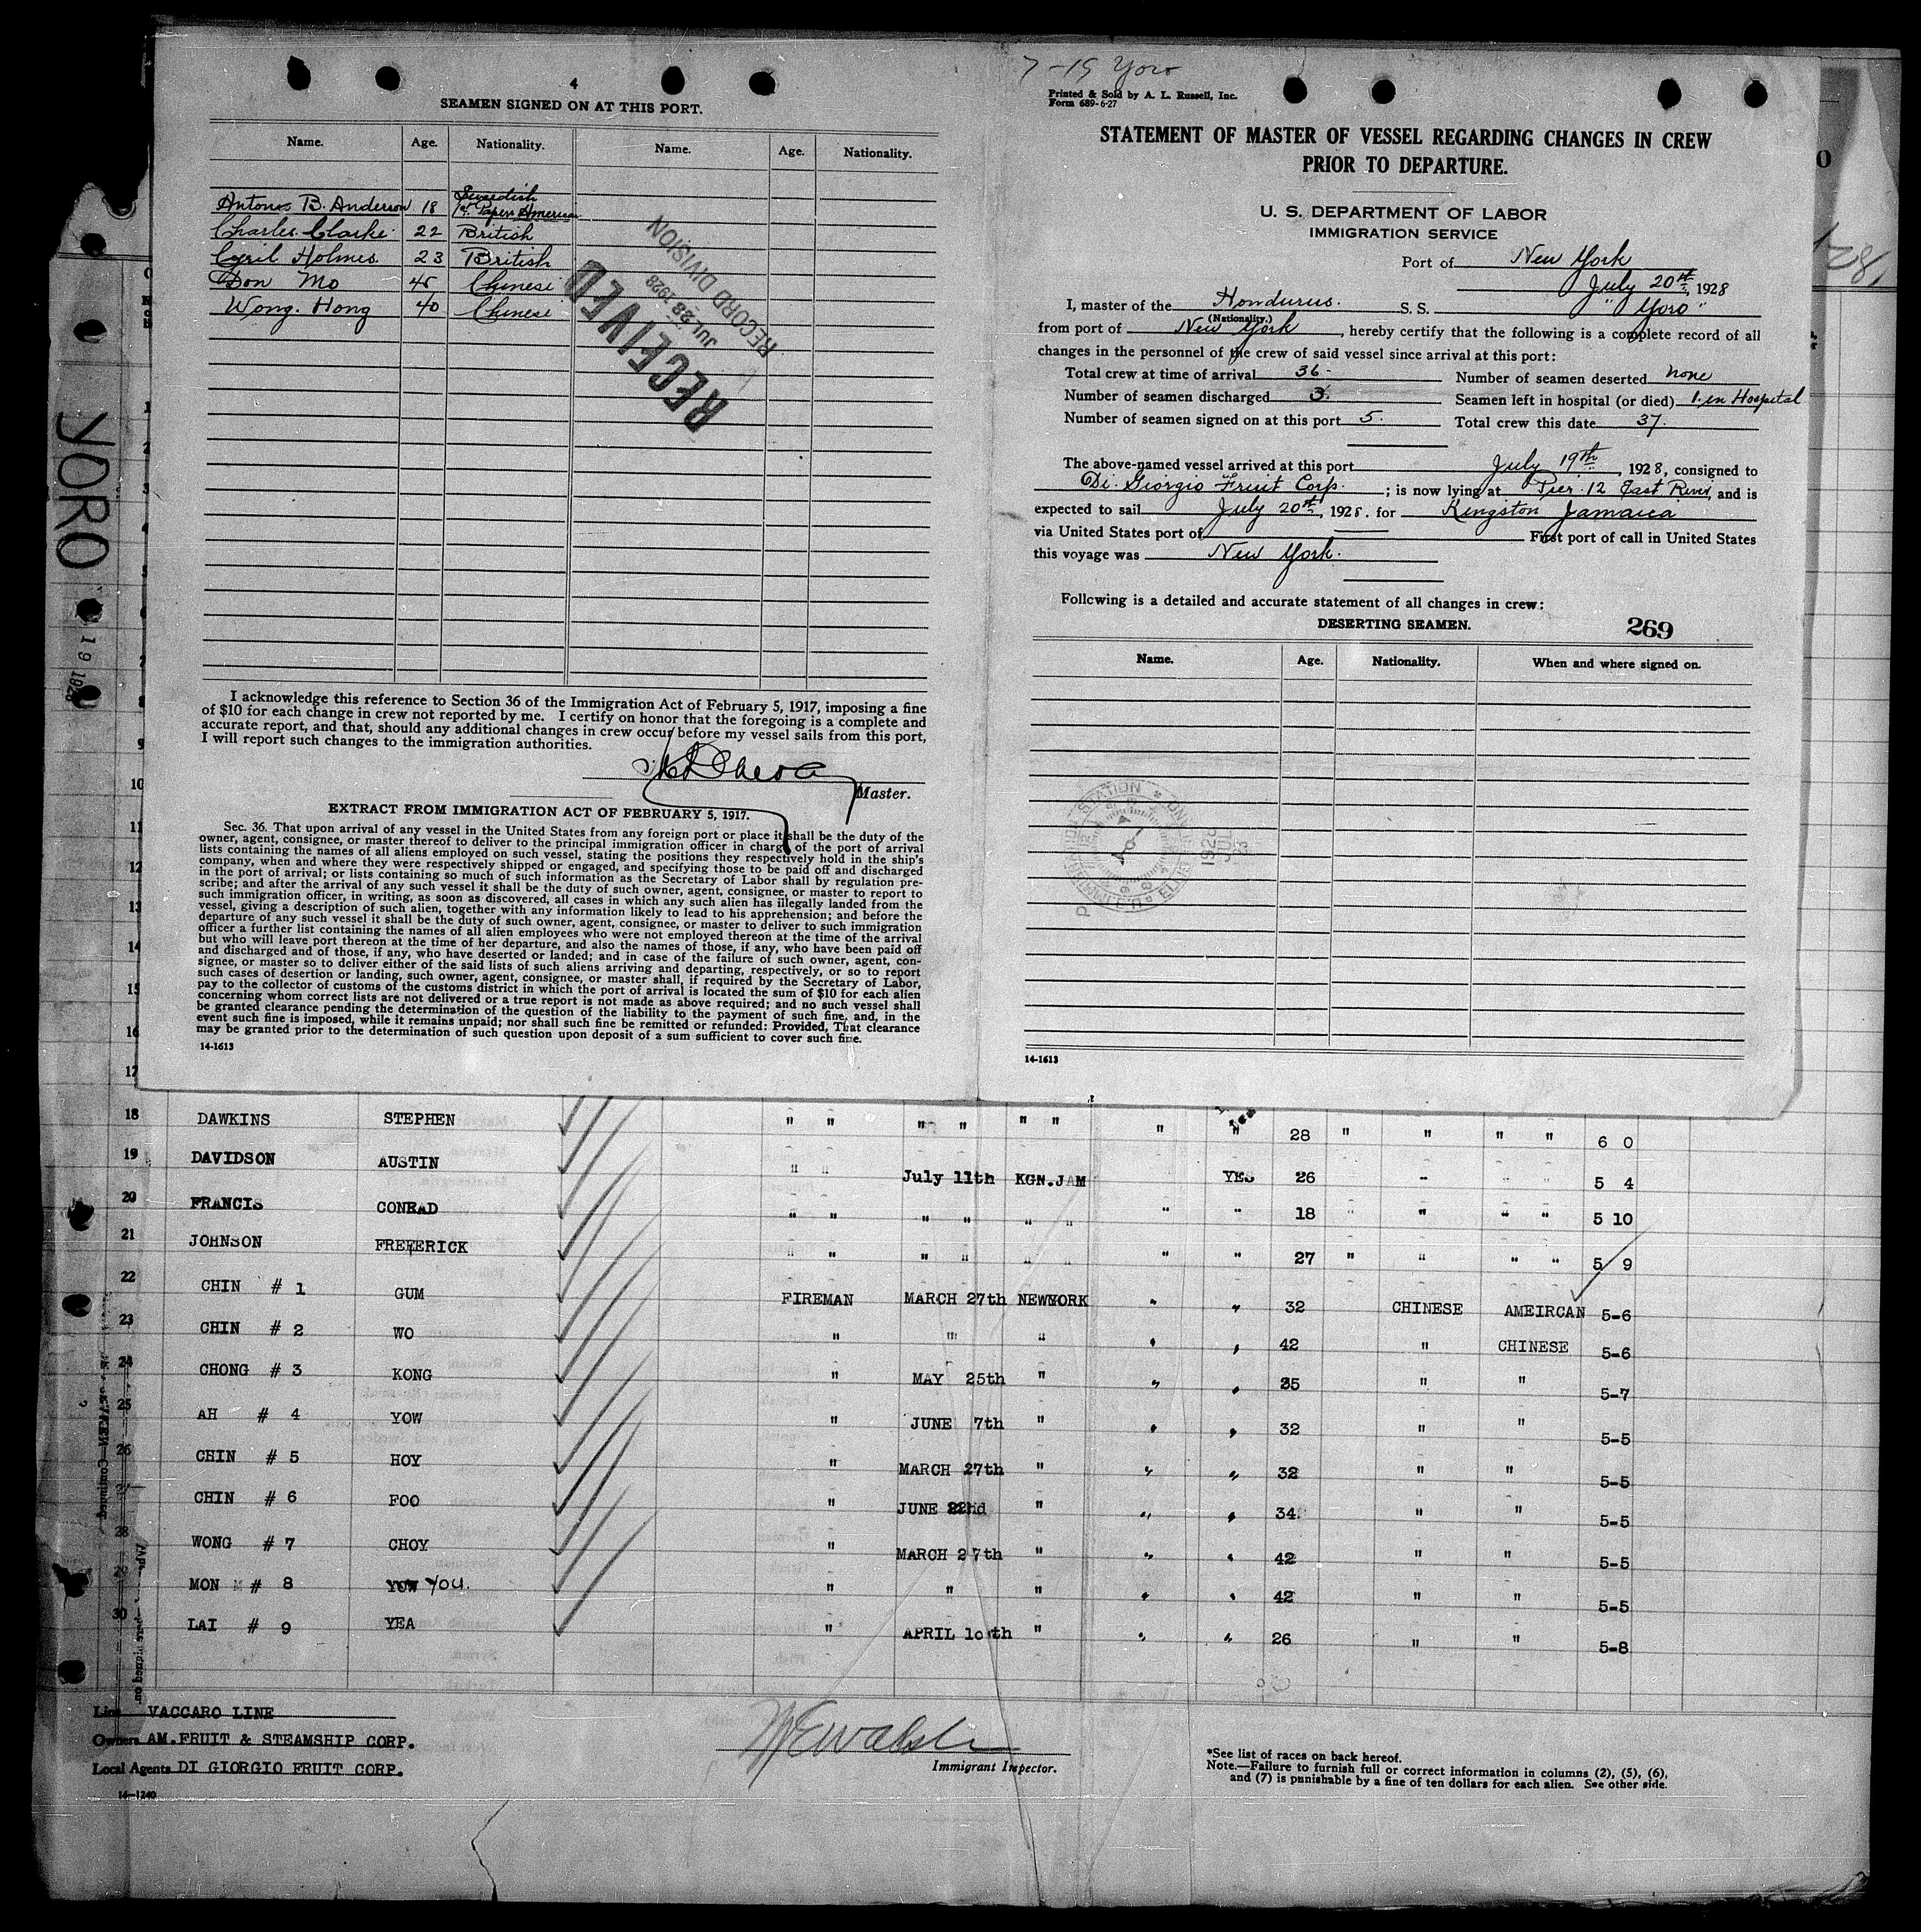 4
SEAMEN SIGNED ON AT THIS PORT.
Name. Age. Nationality. Name. Age. Nationality.
Swedish
Anton B. Anderson 18 1st Papers American
Charles Clarke 22 British
Cyril Holmes 23 British
Don Mo 45 Chinese
Wong. Hong 40 Chinese
RECEIVED
JUL 23 1928
RECORD DIVISION
I acknowledge this reference to Section 36 of the Immigration Act of February 5, 1917, imposing a fine
of $10 for each change in crew not reported by me. I certify on honor that the foregoing is a complete and
accurate report, and that, should any additional changes in crew occur before my vessel sails from this port,
I will report such changes to the immigration authorities.
Master.
EXTRACT FROM IMMIGRATION ACT OF FEBRUARY 5, 1917.
Sec. 36. That upon arrival of any vessel in the United States from any foreign port or place it shall be the duty of the
owner, agent, consignee, or master thereof to deliver to the principal immigration officer in charge of the port of arrival
lists containing the names of all aliens employed on such vessel, stating the positions they respectively hold in the ship's
company, when and where they were respectively shipped or engaged, and specifying those to be paid off and discharged
in the port of arrival; or lists containing so much of such information as the Secretary of Labor shall by regulation pre-
scribe; and after the arrival of any such vessel it shall be the duty of such owner, agent, consignee, or master to report to
such immigration officer, in writing, as soon as discovered, all cases in which any such alien has illegally landed from the
vessel, giving a description of such alien, together with any information likely to lead to his apprehension; and before the
departure of any such vessel it shall be the duty of such owner, agent, consignee, or master to deliver to such immigration
officer a further list containing the names of all alien employees who were not employed thereon at the time of the arrival
but who will leave port thereon at the time of her departure, and also the names of those, if any, who have been paid off
and discharged and of those, if any, who have deserted or landed; and in case of the failure of such owner, agent, con-
signee, or master so to deliver either of the said lists of such aliens arriving and departing, respectively, or so to report
such cases of desertion or landing, such owner, agent, consignee, or master shall, if required by the Secretary of Labor,
pay to the collector of customs of the customs district in which the port of arrival is located the sum of $10 for each alien
concerning whom correct lists are not delivered or a true report is not made as above required; and no such vessel shall
be granted clearance pending the determination of the question of the liability to the payment of such fine, and, in the
event such fine is imposed, while it remains unpaid; nor shall such fine be remitted or refunded: Provided, That clearance
may be granted prior to the determination of such question upon deposit of a sum sufficient to cover such fine.
14-1613
7-19 Yoro
Printed & Sold by A. L. Russell, Inc.
Form 689-6-27
STATEMENT OF MASTER OF VESSEL REGARDING CHANGES IN CREW
PRIOR TO DEPARTURE.
U. S. DEPARTMENT OF LABOR
IMMIGRATION SERVICE
Port of New York
July 20th, 1928
I, master of the Hondurus. S. S. "Yoro"
(Nationality.)
from port of New York, hereby certify that the following is a complete record of all
changes in the personnel of the crew of said vessel since arrival at this port:
Total crew at time of arrival 36- Number of seamen deserted none
Number of seamen discharged 3. Seamen left in hospital (or died) 1. in Hospital
Number of seamen signed on at this port 5. Total crew this date 37.
The above-named vessel arrived at this port July 19th, 1928, consigned to
Di. Giorgio Fruit Corp. ; is now lying at Pier. 12 East River, and is
expected to sail July 20th, 1928. for Kingston Jamaica
via United States port of First port of call in United States
this voyage was New York.
Following is a detailed and accurate statement of all changes in crew:
DESERTING SEAMEN. 269
Name. Age. Nationality. When and where signed on.
14-1613
YORO
19 1928
10
11
12
13
14
15
16
17
18 DAWKINS STEPHEN " " " " " " " " 28 " " " " 6 0
19 DAVIDSON AUSTIN " " July 11th KGN.JAM YES 26 " " " 5 4
20 FRANCIS CONRAD " " " " " " " " 18 " " " " 5 10
21 JOHNSON FREFERICK " " " " " " " " 27 " " " " 5 9
22 CHIN # 1 GUM FIREMAN MARCH 27th NEWYORK " " 32 CHINESE AMEIRCAN 5-6
23 CHIN # 2 WO " " " " " 42 " CHINESE 5-6
24 CHONG # 3 KONG " MAY 25th " " " 35 " " 5-7
25 AH # 4 YOW " JUNE 7th " " " 32 " " 5-5
26 CHIN # 5 HOY " MARCH 27th " " " 32 " " 5-5
27 CHIN # 6 FOO " JUNE 22nd " " " 34 " " 5-5
28 WONG # 7 CHOY " MARCH 27th " " " 42 " " 5-5
29 MON # 8 YOW YOU. " " " " " 42 " " 5-5
30 LAI # 9 YEA " APRIL 10th " " " 26 " " 5-8
Line VACCARO LINE
Owners AM.FRUIT & STEAMSHIP CORP.
Local Agents DI GIORGIO FRUIT CORP.
14-1240
WE Walsh
Immigrant Inspector.
*See list of races on back hereof.
Note.—Failure to furnish full or correct information in columns (2), (5), (6),
and (7) is punishable by a fine of ten dollars for each alien. See other side.